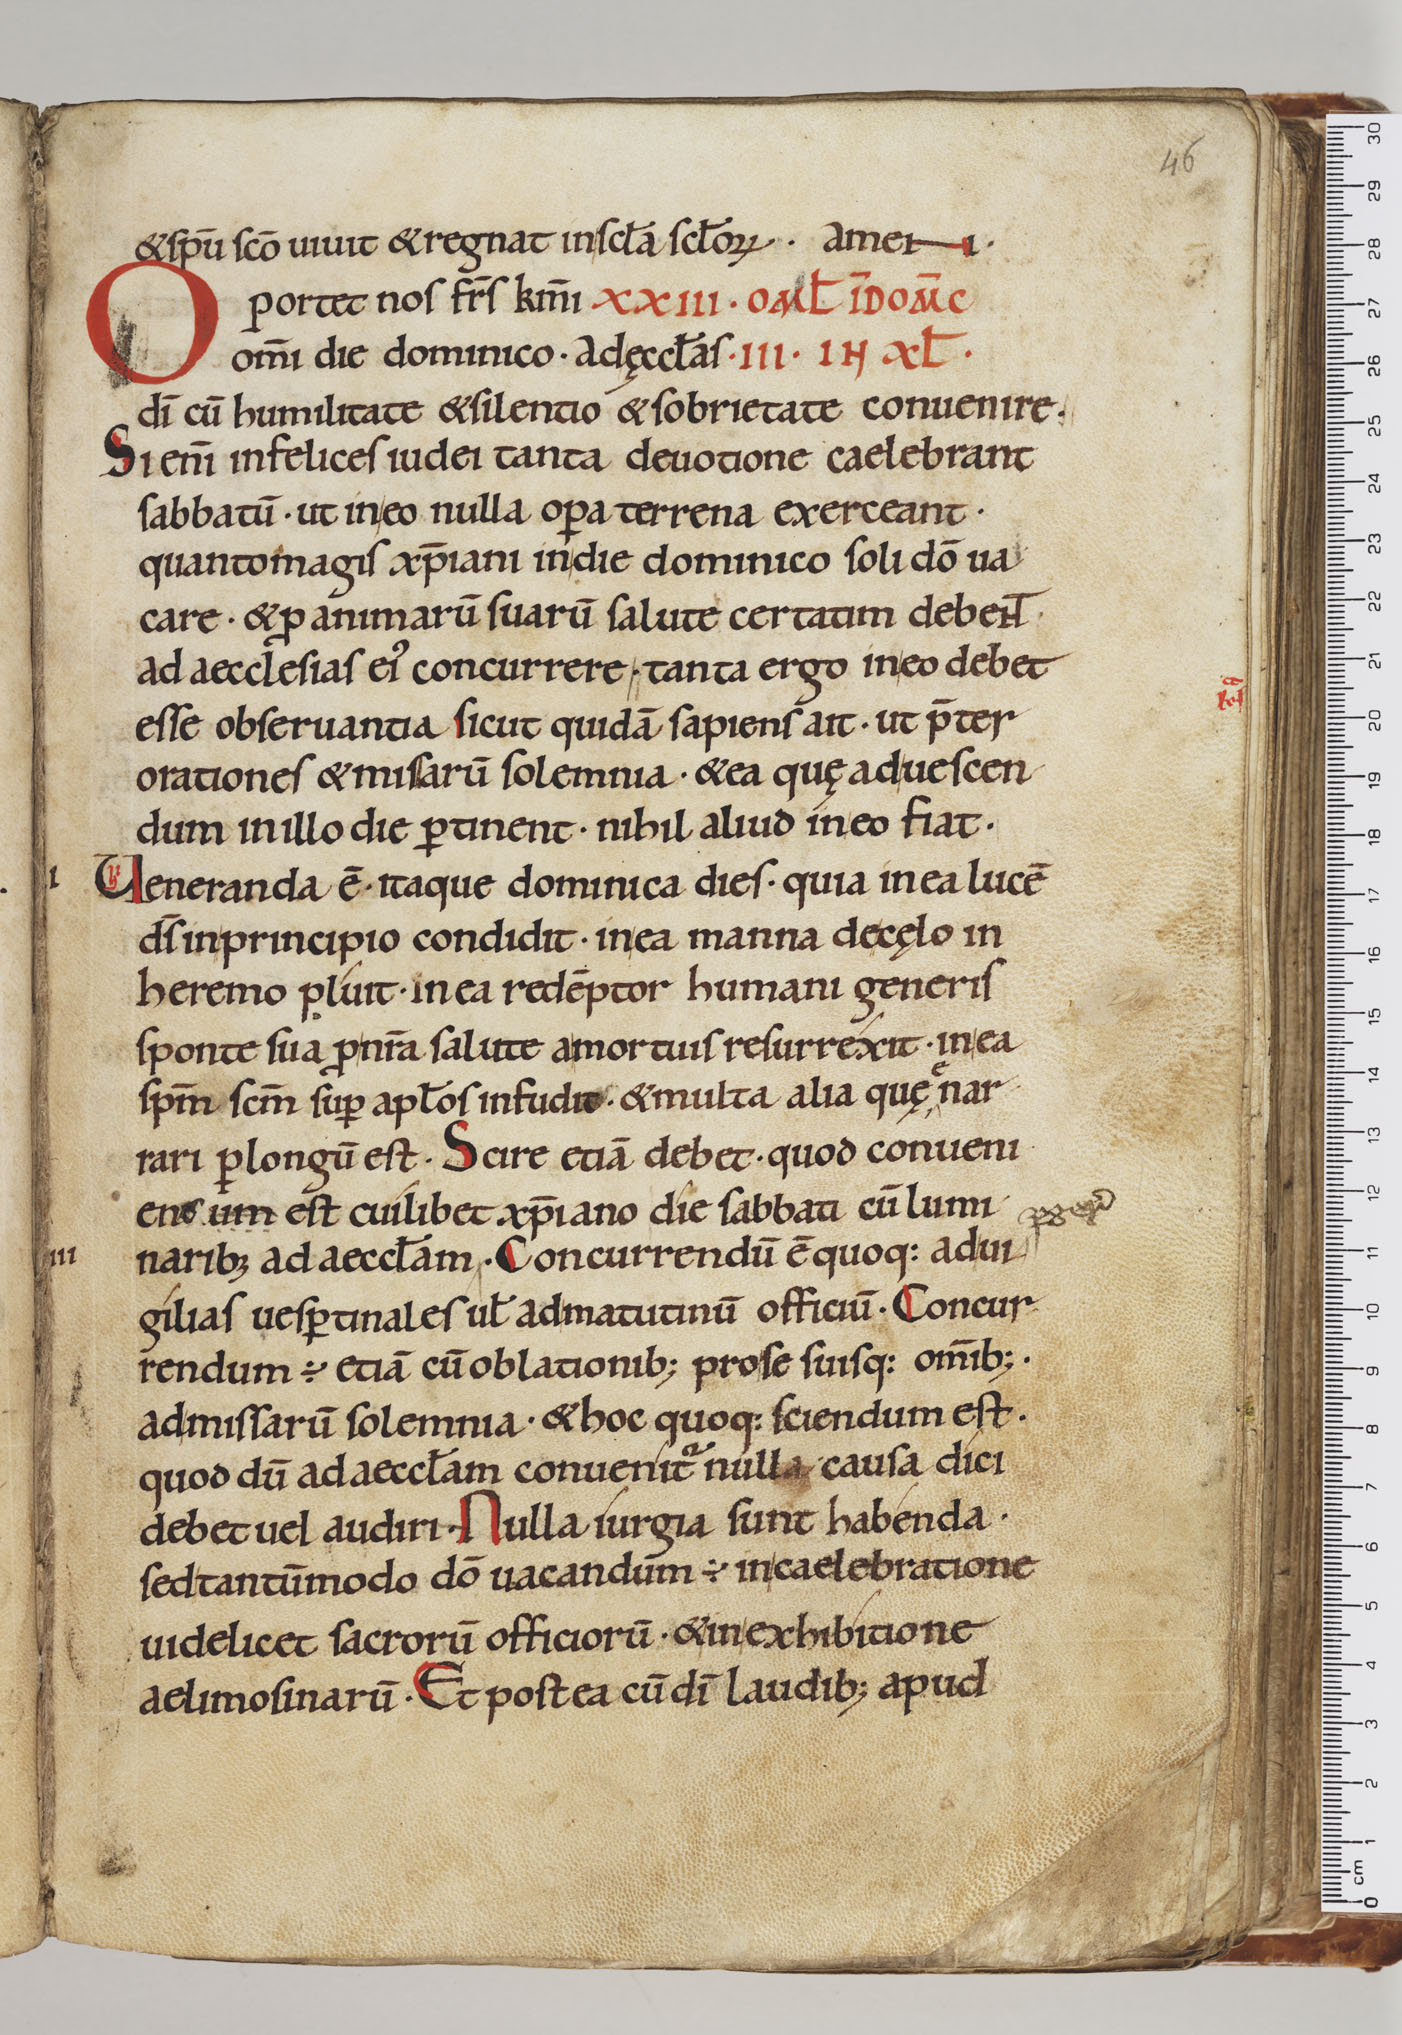 46
&sp̄u sc̄o uiuit &regnat inscl̄a scl̄oꝝ · amen ·
Oportet nos fr̄s km̄i XXIII · OML̄ ĪDOM̄C
om̄i die dominico · adęccl̄as · III · IN XL̄ ·
dī cū humilitate &silentio &sobrietate conuenire.
Si eni̅ infelices iudei tanta deuotione caelebrant
sabbatū · ut ineo nulla oꝑa terrena exerceant ·
quantomagis xp̄iani indie dominico soli dō ua
care · &ꝓ animarū suarū salute certatim debent̄
ad aecclesias ei᾿ concurrere · tanta ergo ineo debet
esse obseruantia sicut quidā sapiens ait · ut p̄ter
orationes &missarū solemnia · &ea quę aduescen
dum inillo die ꝑtinent · nihil aliud ineo fiat ·
I Ueneranda ē · itaque dominica dies · quia inea lucē
ds̄ inprincipio condidit · inea manna decęlo in
heremo pluit · inea redēptor humani generis
sponte sua ꝓ nr̄a salute amortuis resurrexit · inea
sp̄m sc̄m suꝑ apl̄os infudit · &multa alia quę nar
rari ꝑlongū est · Scire etiā debet · quod conueni
ens um est cuilibet xp̄iano die sabbati cū lumi
III naribꝫ ad aeccl̄am · Concurrendū ē quoq: adui
gilias uesꝑtinales ul̄ admatutinū officiū · Concur
rendum ÷ etiā cū oblationib; prose suisq: om̄ib; ·
admissarū solemnia · &hoc quoq: sciendum est ·
quod dū ad aeccl̄am conuenit᷑ nulla causa dici
debet uel audiri · Nulla iurgia sunt habenda ·
sedtantūmodo dō uacandum ÷ incaelebratione
uidelicet sacrorū officiorū · &inexhibitione
aelimosinarū · Et postea cū dī laudib; apud